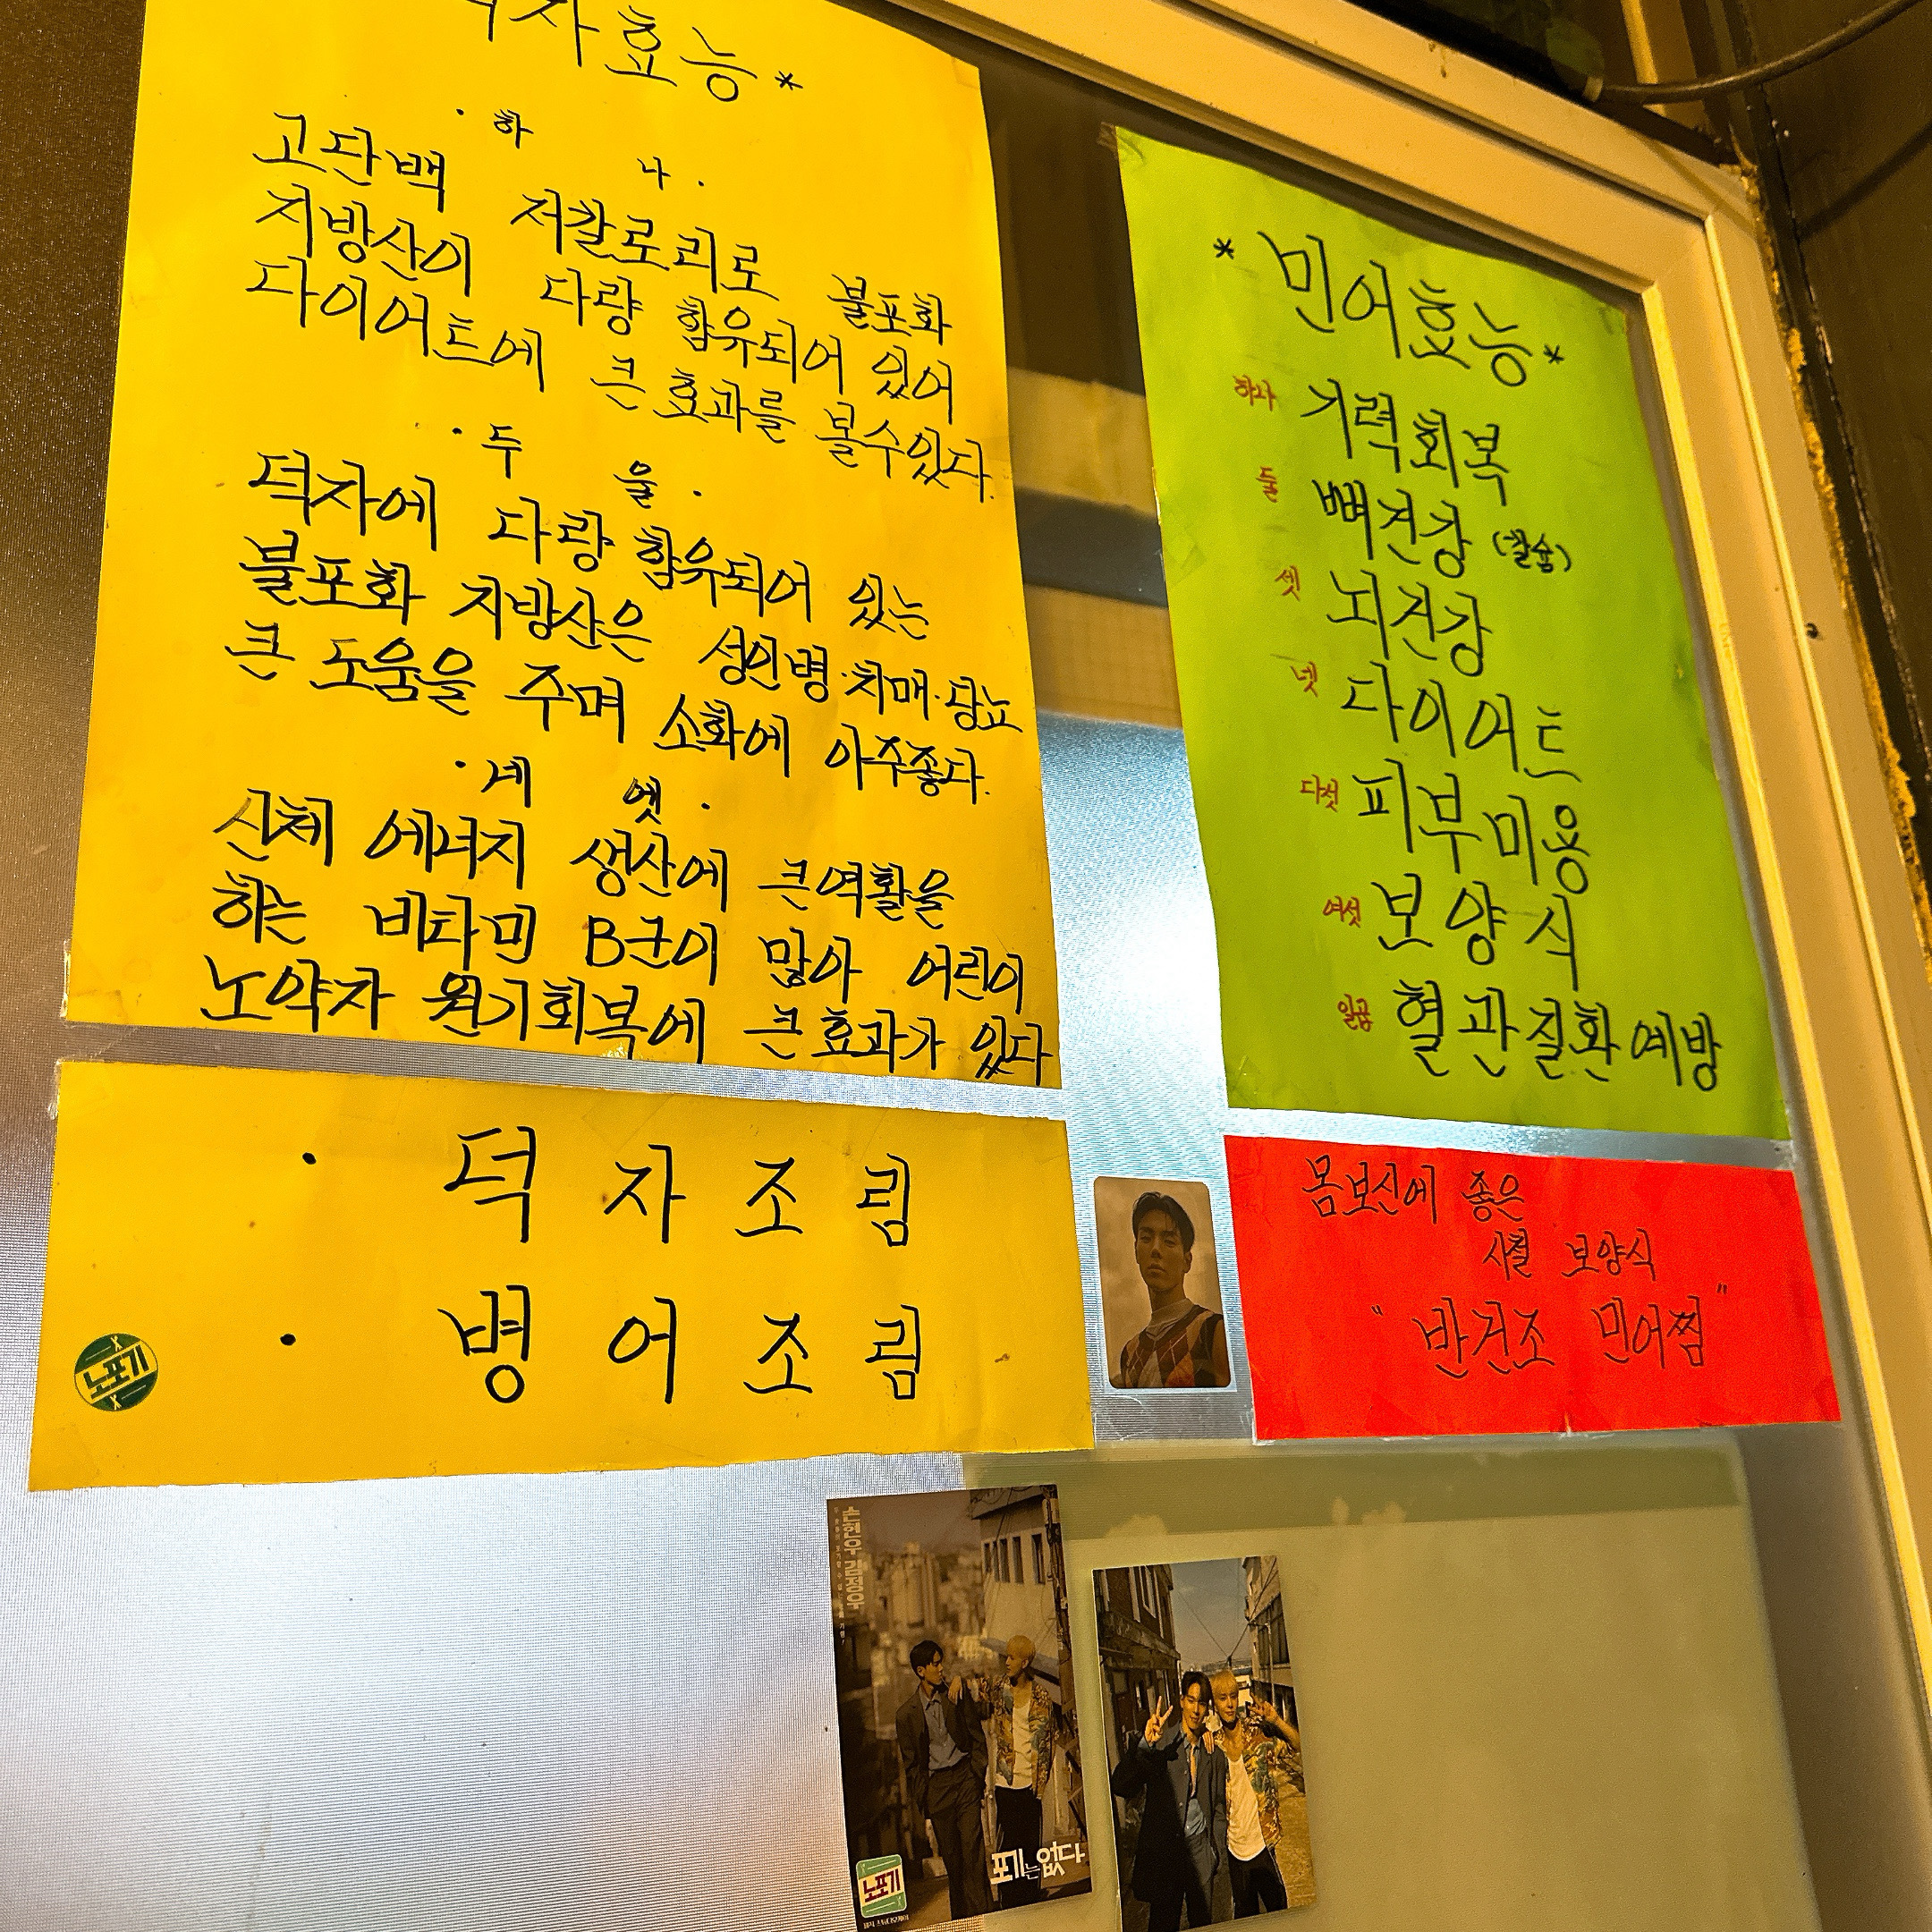 덕자효능*
· 하 나 ·
고단백 저칼로리로 불포화
지방산이 다량 함유되어 있어
다이어트에 큰 효과를 볼수있다.
· 두 울 ·
덕자에 다량 함유되어 있는
불포화 지방산은 성인병·치매·당뇨
큰 도움을 주며 소화에 아주좋다.
· 네 엣 ·
신체 에너지 생산에 큰역활을
하는 비타민 B군이 많아 어린이
노약자 원기회복에 큰효과가 있다
· 덕자조림
· 병어조림
노포기
* 민어효능 *
하나 기력회복
둘 뼈건강 (칼슘)
셋 뇌건강
넷 다이어트
다섯 피부미용
여섯 보양식
일곱 혈관질환예방
몸보신에 좋은
사철 보양식
"반건조 민어찜"
손현우 김정우
포기는없다
노포기